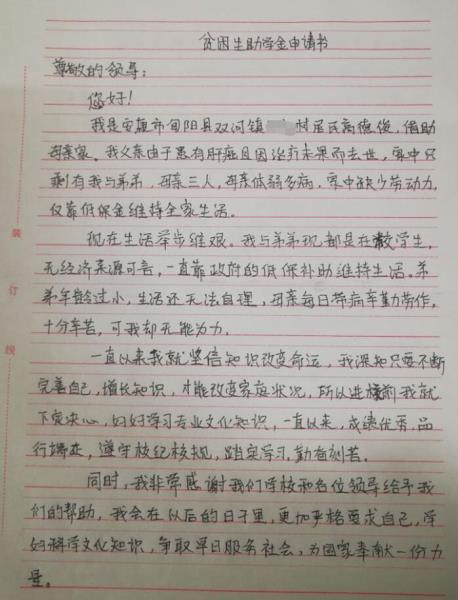 贫困生助学金申请书
尊敬的领导：
您好！
我是安康市旬阳县双河镇 村居民高德俊，借助
母亲家。我父亲由于患有肝癌且因治疗未果而去世，家中只
剩有我与弟弟，母亲三人，母亲体弱多病，家中缺少劳动力，
仅靠低保金维持全家生活。
现在生活举步维艰。我与弟弟现都是在学生，
无经济来源可言，一直靠政府的低保补助维持生活。弟
弟年龄过小，生活还无法自理，母亲每日带病辛勤劳作，
十分辛苦，可我却无能为力。
一直以来我就坚信知识改变命运，我深知只要不断
完善自己，增长知识，才能改变家庭状况，所以进校前我就
下定决心，好好学习专业文化知识，一直以来，成绩优秀，品
行端正，遵守校纪校规，踏实学习，勤奋刻苦。
同时，我非常感谢我们学校和各位领导给予我
们的帮助，我会在以后的日子里，更加严格要求自己，学
好科学文化知识，争取早日服务社会，为国家奉献一份力
量。
装
订
线